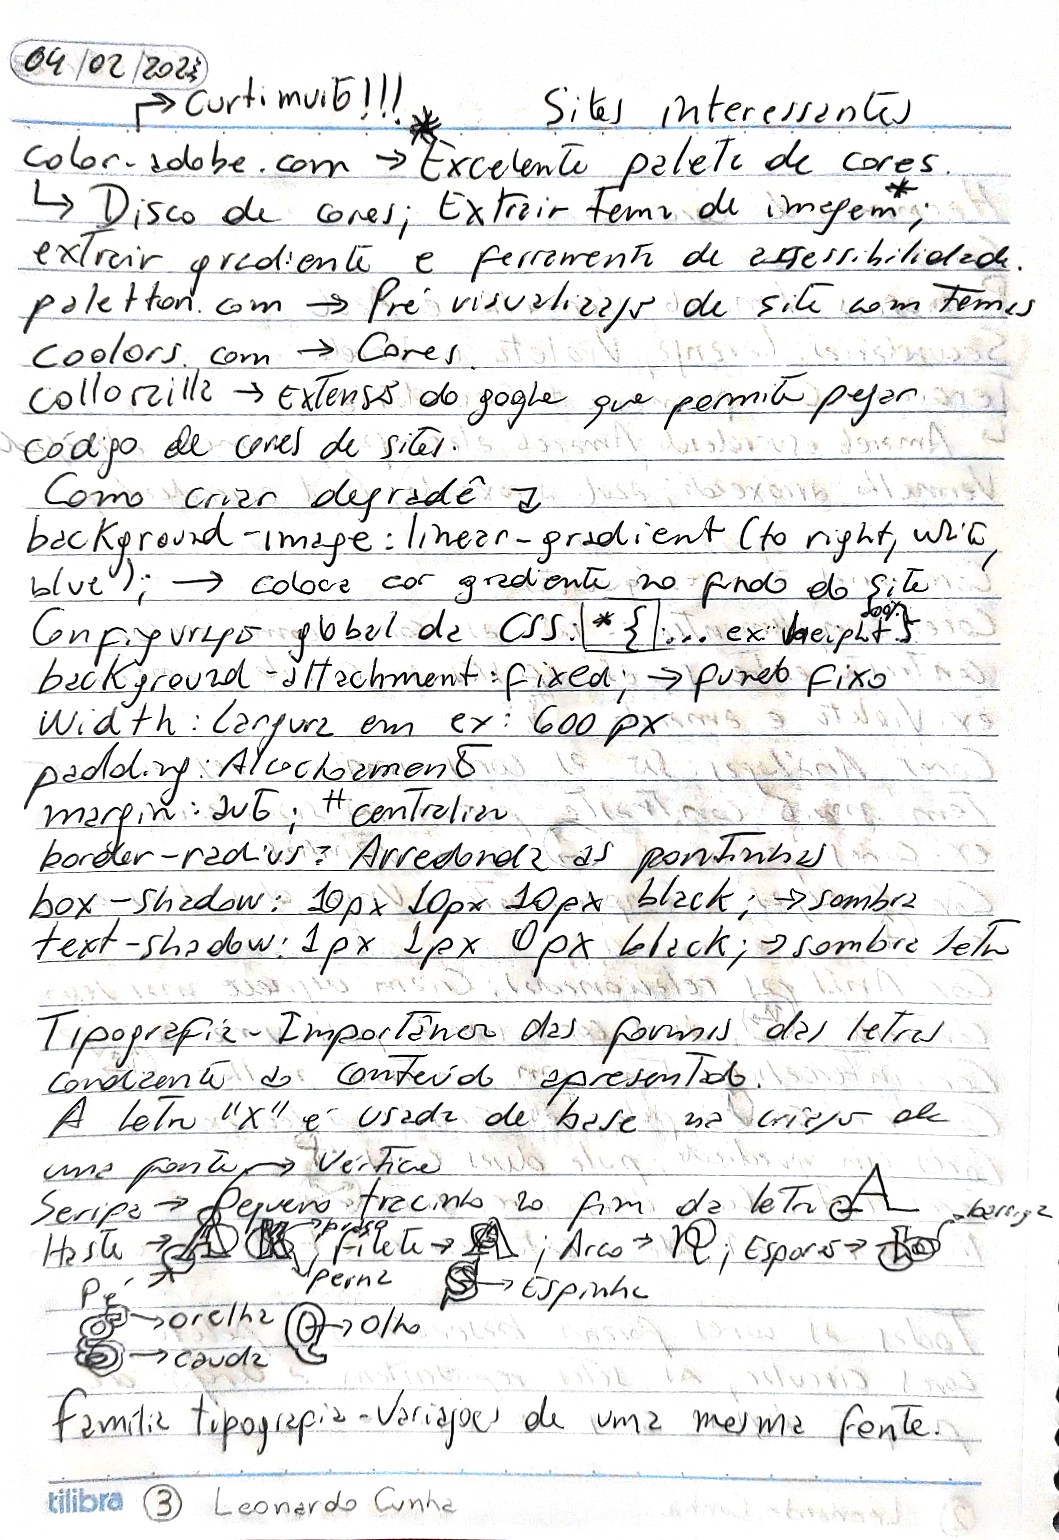 04/02/2023
→ Curti muito!!!
* Sites interessantes
color.adobe.com → Excelente palete de cores.
↳ Disco de cores; Extrair tema de imagem*;
extrair gradiente e ferramenta de assessibilidade.
paletton.com → Pré visualização de site com temas
coolors.com → Cores
collorzilla → Extensão do gogle que permite pegar
código de cores de sites.
Como criar degradê ↴
background-image: linear-gradient (to right, white,
blue); → coloca cor gradiente no fundo do site
Configuração global de CSS: *{ ... ex: height }
background-attachment: fixed; → fundo fixo
Width: Largura em ex: 600 px
padding: Alcochoamento
margin: auto; # centraliza
border-radius: Arredonda as pontinhas
box-shadow: 10px 10px 10px black; → sombra
text-shadow: 1px 1px 0px black; → sombra letra
Tipografia - Importância das formas das letras
condizente ao conteúdo apresentado.
A letra "x" é usada de base na criação de
uma fonte → Vértice
Serifa → Pequeno tracinho no fim da letra A
barriga
Haste → A K → braço; filete → A; Arco → n; Esporas → b
Pé perna S → Espinha
g → orelha Q → Olho
→ cauda
Família tipografia - Variações de uma mesma fonte.
tilibra 3 Leonardo Cunha